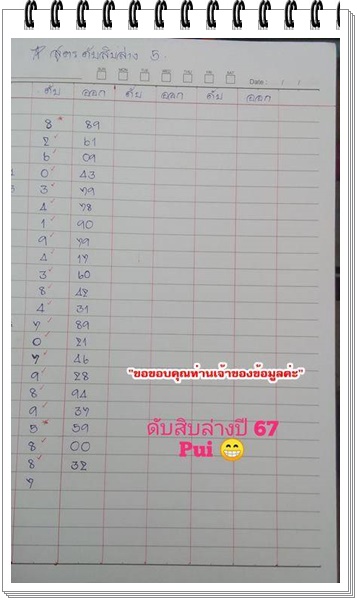 * สูตร ดับสิบล่าง 5.
SUN MON TUE WED THU FRI SAT Date : / /
ดับ ออก ดับ ออก ดับ ออก
8 * 89
2 ✓ 61
6 ✓ 09
0 ✓ 43
3 ✓ 79
4 ✓ 78
1 ✓ 90
9 ✓ 79
4 ✓ 17
3 ✓ 60
8 ✓ 42
4 ✓ 31
7 ✓ 89
0 ✓ 21
7 ✓ 46
9 ✓ 28
8 ✓ 94
9 ✓ 37
5 * 59
8 ✓ 00
8 ✓ 32
7
"ขอขอบคุณท่านเจ้าของข้อมูลค่ะ"
ดับสิบล่างปี 67
Pui 😁